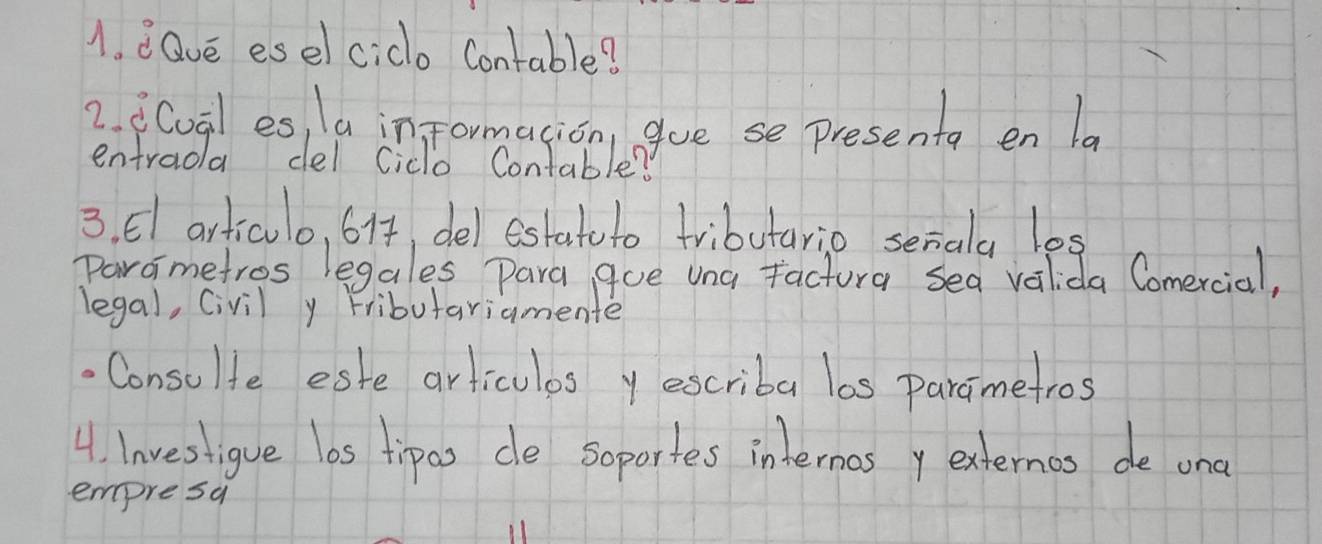 1. ¿Qué es el ciclo Contable?
2. ¿Cuál es, la información, que se presenta en la
entrada del Ciclo Contable?
3. El articulo, 617, del estatuto tributario señala los
parámetros legales para que una factura sea válida Comercial,
legal, Civil y tributariamente
• Consulte este articulos y escriba los parámetros
4. Investigue los tipos de soportes internos y externos de una
empresa